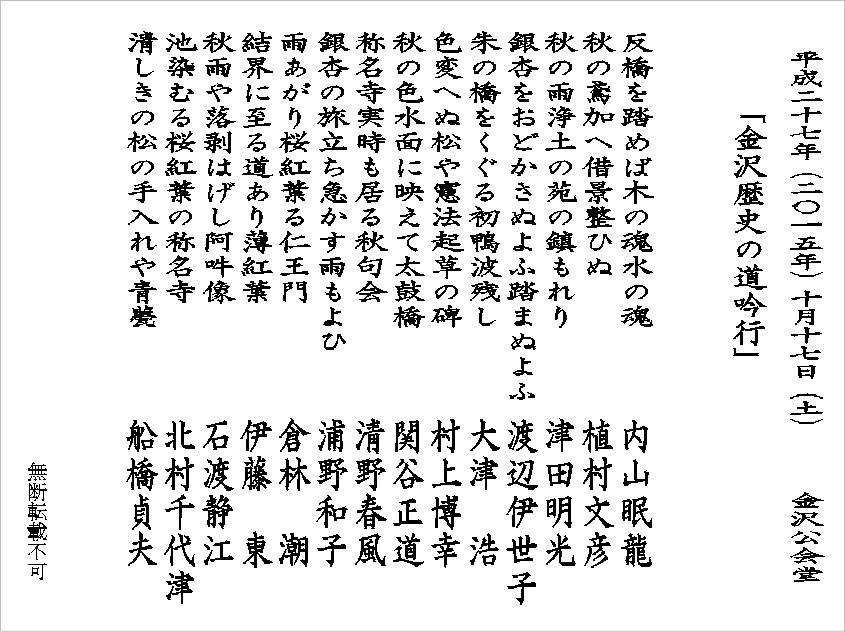 平成二十七年（二〇一五年）十月十七日（土）　金沢公会堂
「金沢歴史の道吟行」
反橋を踏めば木の魂水の魂　内山眠龍
秋の鳶加へ借景整ひぬ　植村文彦
秋の雨浄土の苑の鎮もれり　津田明光
銀杏をおどかさぬよふ踏まぬよふ　渡辺伊世子
朱の橋をくぐる初鴨波残し　大津　浩
色変へぬ松や憲法起草の碑　村上博幸
秋の色水面に映えて太鼓橋　関谷正道
称名寺実時も居る秋句会　清野春風
銀杏の旅立ち急かす雨もよひ　浦野和子
雨あがり桜紅葉る仁王門　倉林　潮
結界に至る道あり薄紅葉　伊藤　東
秋雨や落剥はげし阿吽像　石渡静江
池染むる桜紅葉の称名寺　北村千代津
清しきの松の手入れや青甍　船橋貞夫
無断転載不可